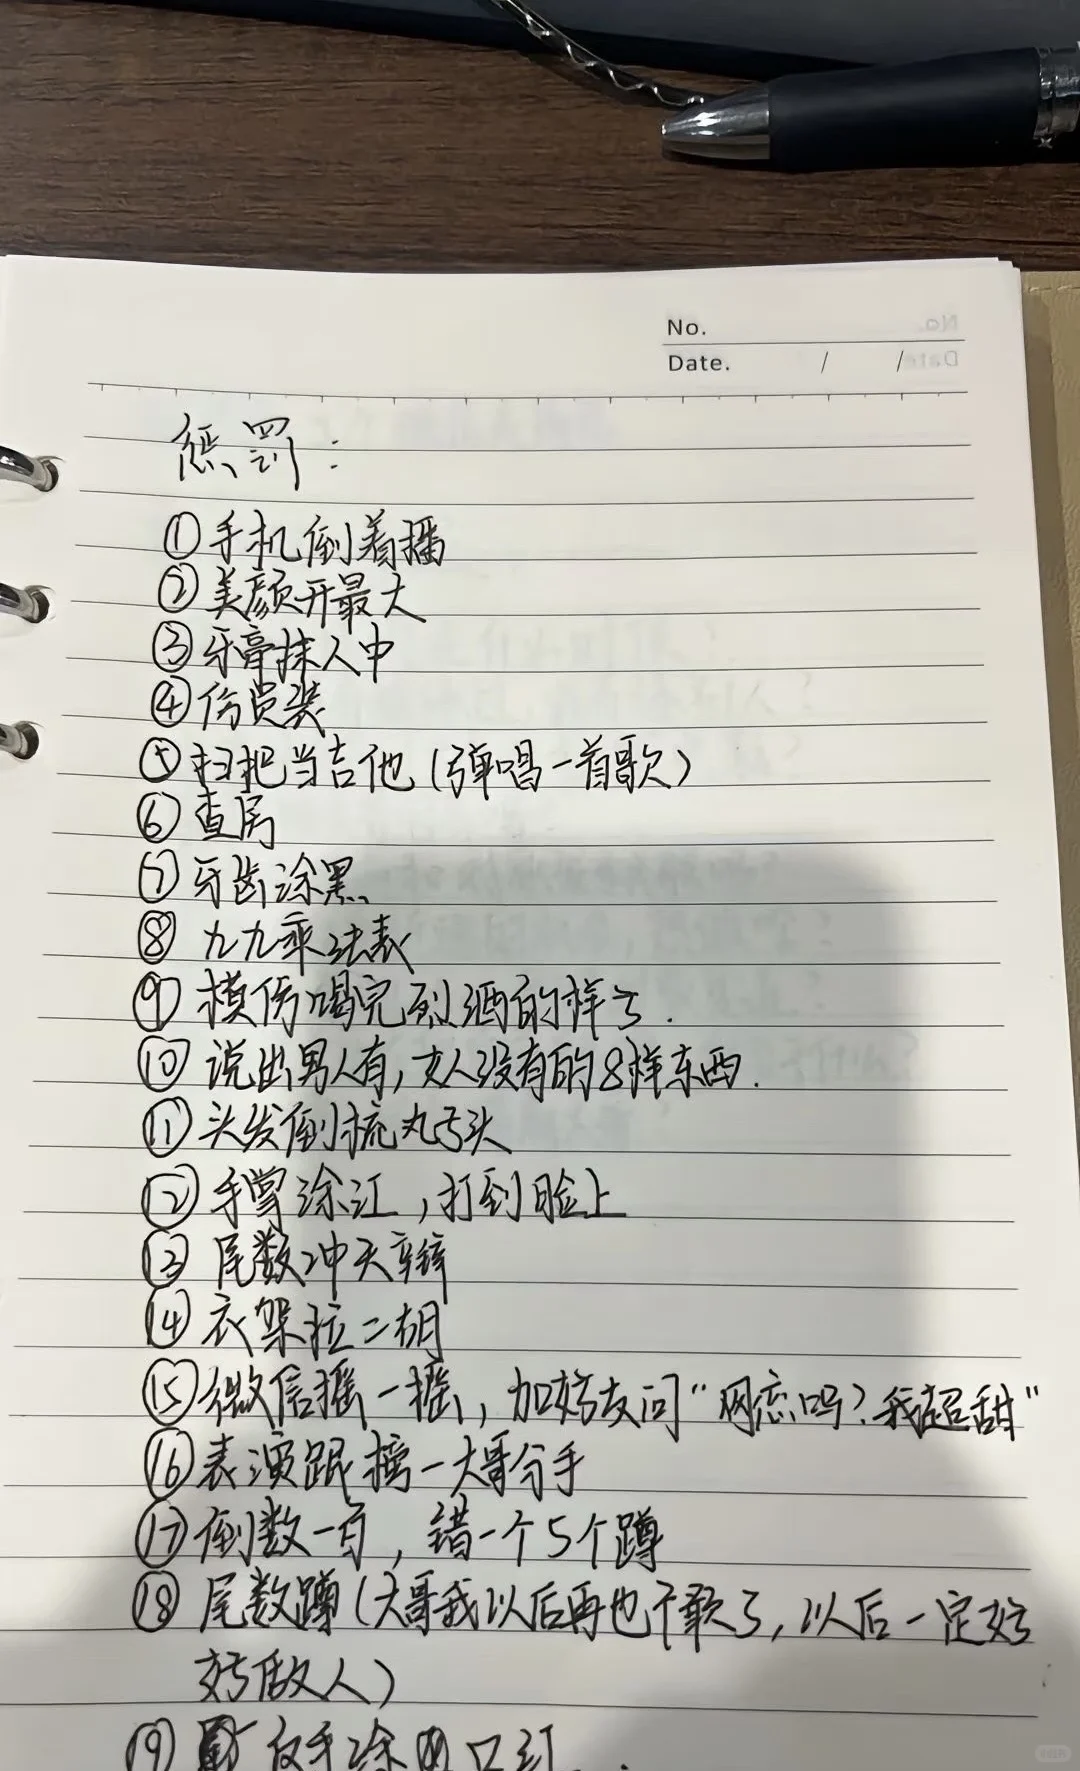 No.
Date. / /
惩罚：
①手机倒着播
②美颜开最大
③牙膏抹人中
④伤员装
⑤扫把当吉他（弹唱一首歌）
⑥查房
⑦牙齿涂黑
⑧九九乘法表
⑨模仿喝完烈酒的样子.
⑩说出男人有，女人没有的8样东西.
⑪头发倒梳丸子头
⑫手掌涂江，打到脸上
⑬尾数冲天辫
⑭衣架拉二胡
⑮微信摇一摇，加好友问“网恋吗？我超甜”
⑯表演跟榜一大哥分手
⑰倒数一百，错一个5个蹲
⑱尾数蹲（大哥我以后再也不敢了，以后一定好
好做人）
⑲反手涂口红